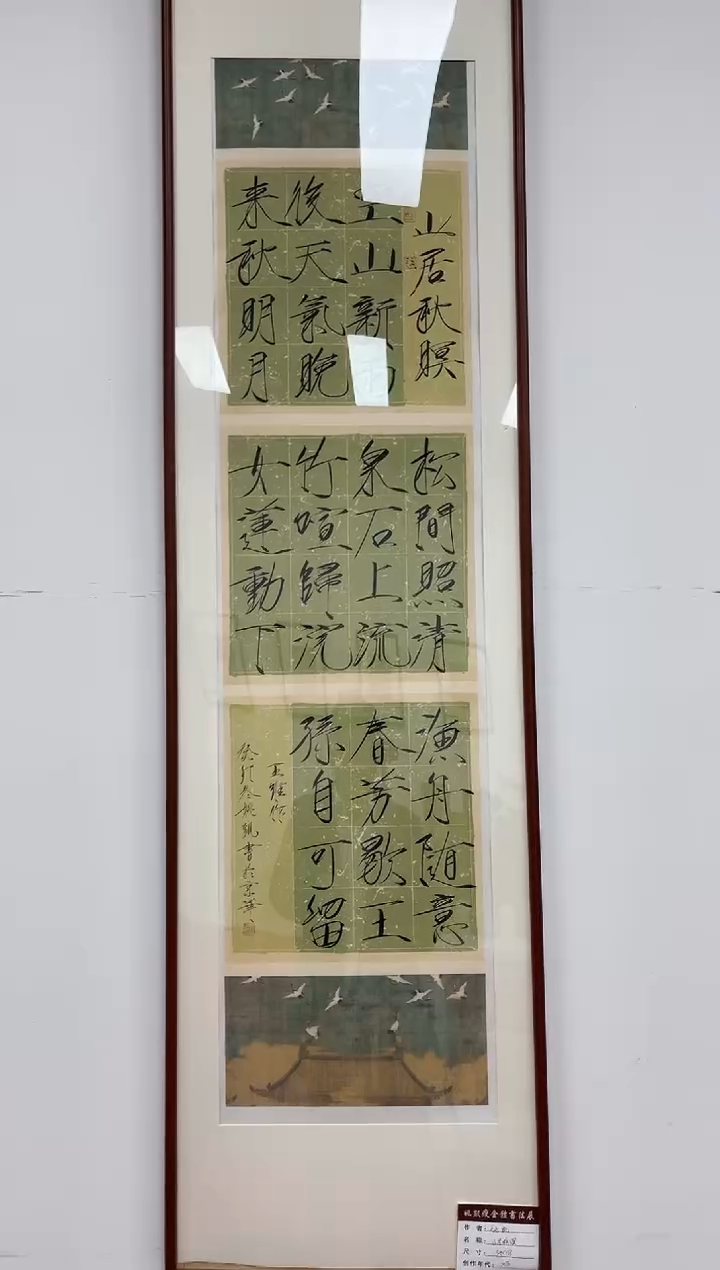 山居秋暝
空山新雨
後天氣晚
来秋明月
松間照清
泉石上流
竹喧歸浣
女蓮動下
漁舟随意
春芳歇王
孫自可留
王維作
癸卯冬姚書於京華
瘦金體書法展
作 者:
名 稱:
尺 寸:
創作年代: